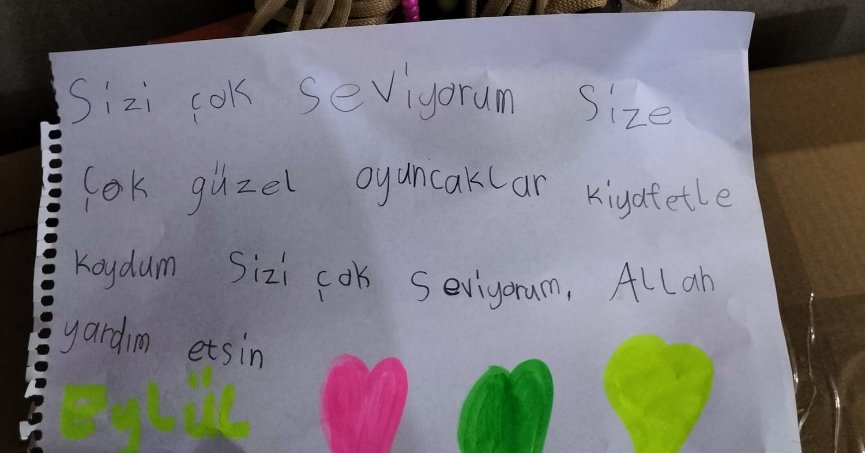 Sizi çok seviyorum Size
Çok güzel oyuncaklar kiyafetle
koydum Sizi çok seviyorum, Allah
yardım etsin
Eylül